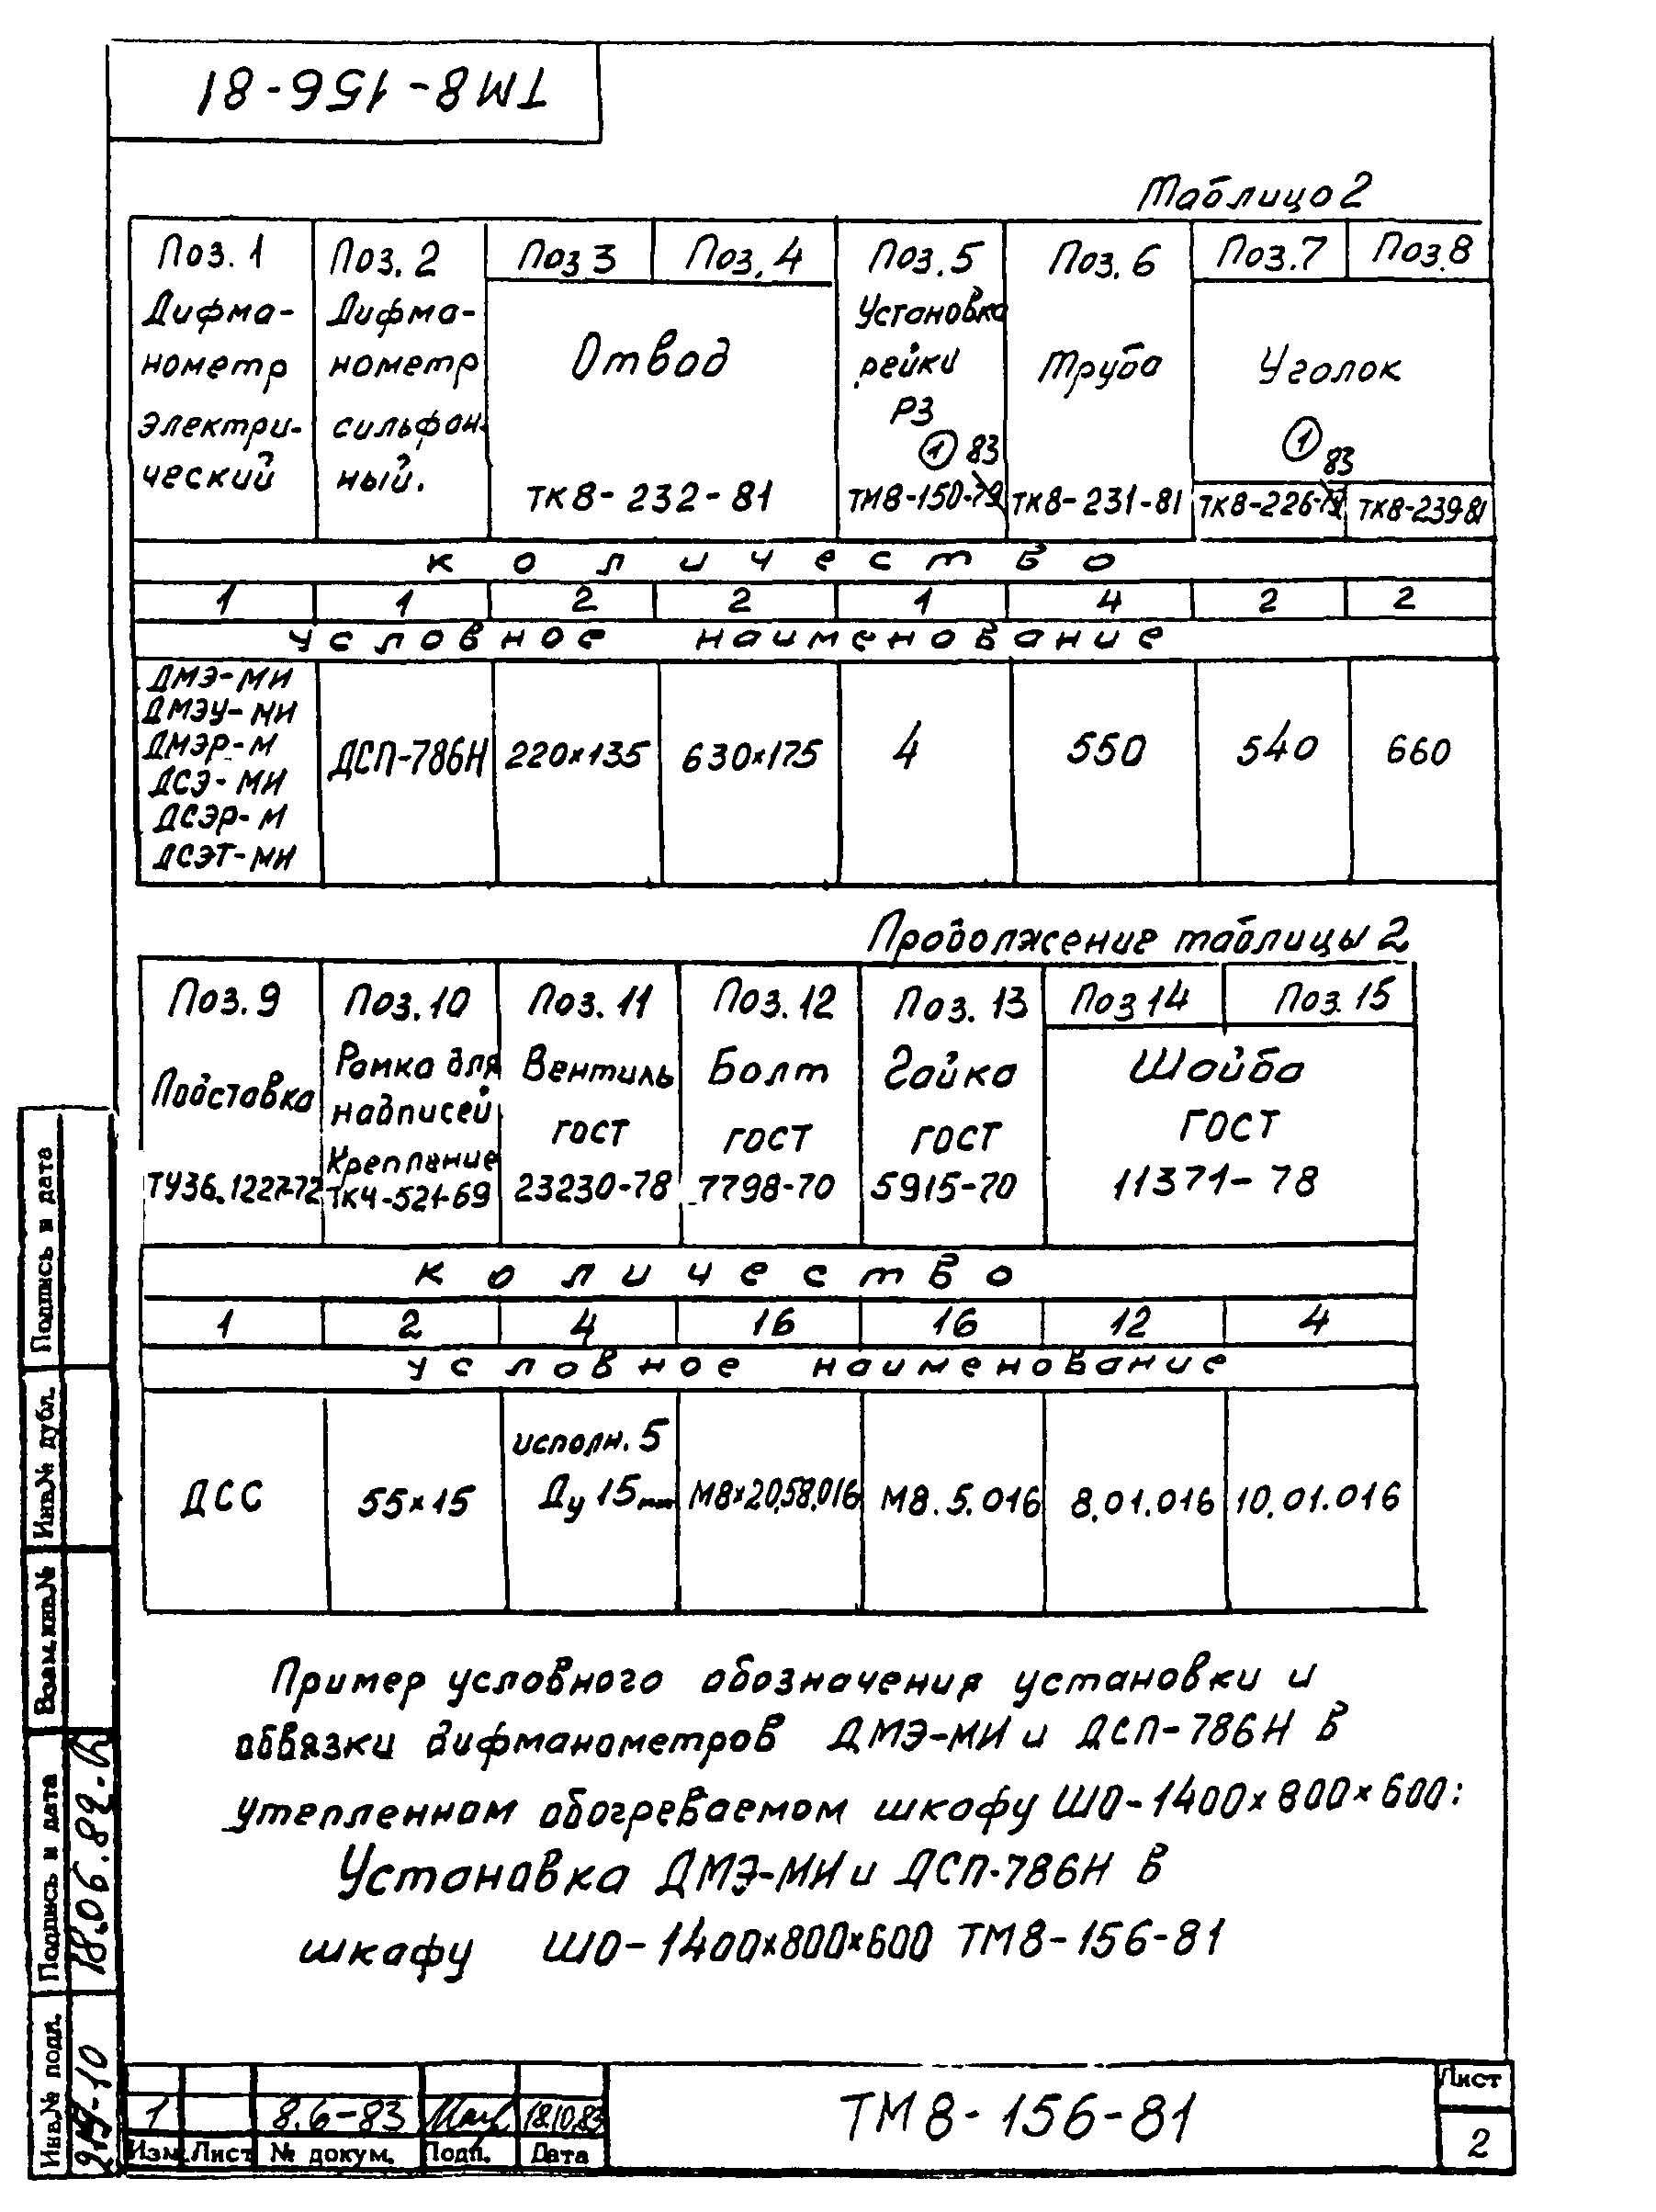 ТМ8-156-81
Таблица 2
Поз. 1 Поз. 2 Поз 3 Поз. 4 Поз. 5 Поз. 6 Поз. 7 Поз. 8
Дифма- Дифма- Установка
нометр нометр Отвод рейки Труба Уголок
электри- сильфон- Р3
ческий ный. ① 83 ① 83
ТК8-232-81 ТМ8-150-79 ТК8-231-81 ТК8-226- ТК8-239-81
количество
1 1 2 2 1 4 2 2
условное наименование
ДМЭ-МИ
ДМЭУ-МИ
ДМЭР-М ДСП-786Н 220×135 630×175 4 550 540 660
ДСЭ-МИ
ДСЭР-М
ДСЭТ-МИ
Продолжение таблицы 2
Поз. 9 Поз. 10 Поз. 11 Поз. 12 Поз. 13 Поз 14 Поз. 15
Подставка Рамка для Вентиль Болт Гайка Шайба
надписей ГОСТ ГОСТ ГОСТ ГОСТ
Крепление
ТУ36.1227-72 ТК4-521-69 23230-78 7798-70 5915-70 11371-78
количество
1 2 4 16 16 12 4
условное наименование
исполн. 5
ДСС 55×15 Ду 15мм М8×20.58.016 М8.5.016 8.01.016 10.01.016
Пример условного обозначения установки и
обвязки дифманометров ДМЭ-МИ и ДСП-786Н в
утепленном обогреваемом шкафу ШО-1400×800×600:
Установка ДМЭ-МИ и ДСП-786Н в
шкафу ШО-1400×800×600 ТМ8-156-81
Подпись и дата
Инв.№ дубл.
Взам.инв.№
Подпись и дата 18.06.82
Инв.№ подл.
1 8.6-83 18.10.83
Изм. Лист № докум. Подп. Дата
ТМ8-156-81
Лист
2